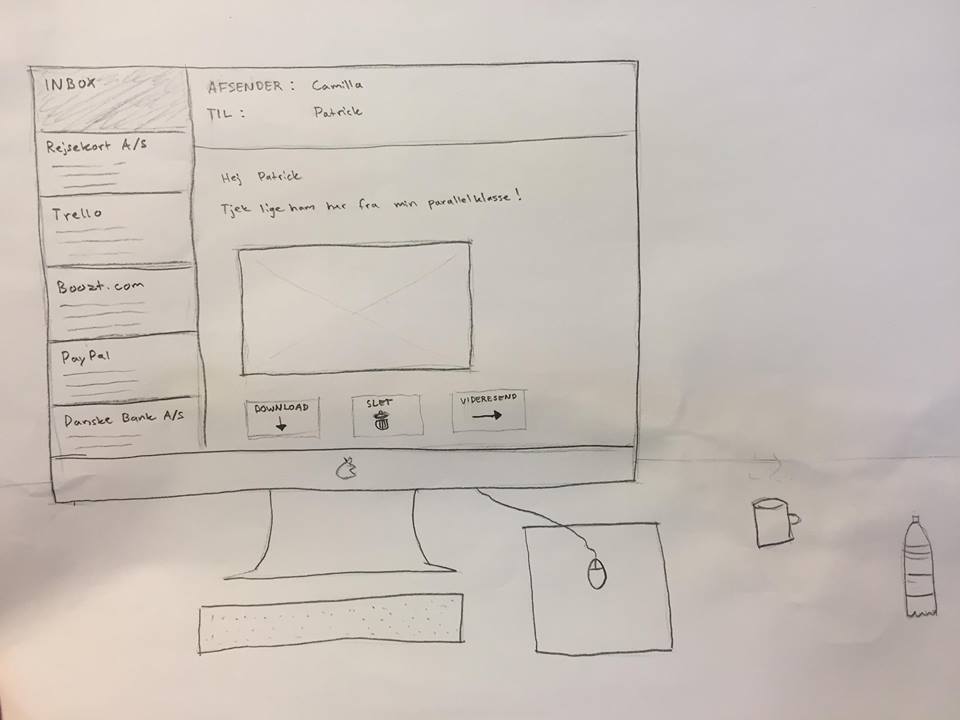 INBOX
Rejsekort A/S
Trello
Boozt.com
PayPal
Danske Bank A/S
AFSENDER : Camilla
TIL : Patrick
Hej Patrick
Tjek lige ham her fra min parallelklasse !
DOWNLOAD
SLET
VIDERESEND